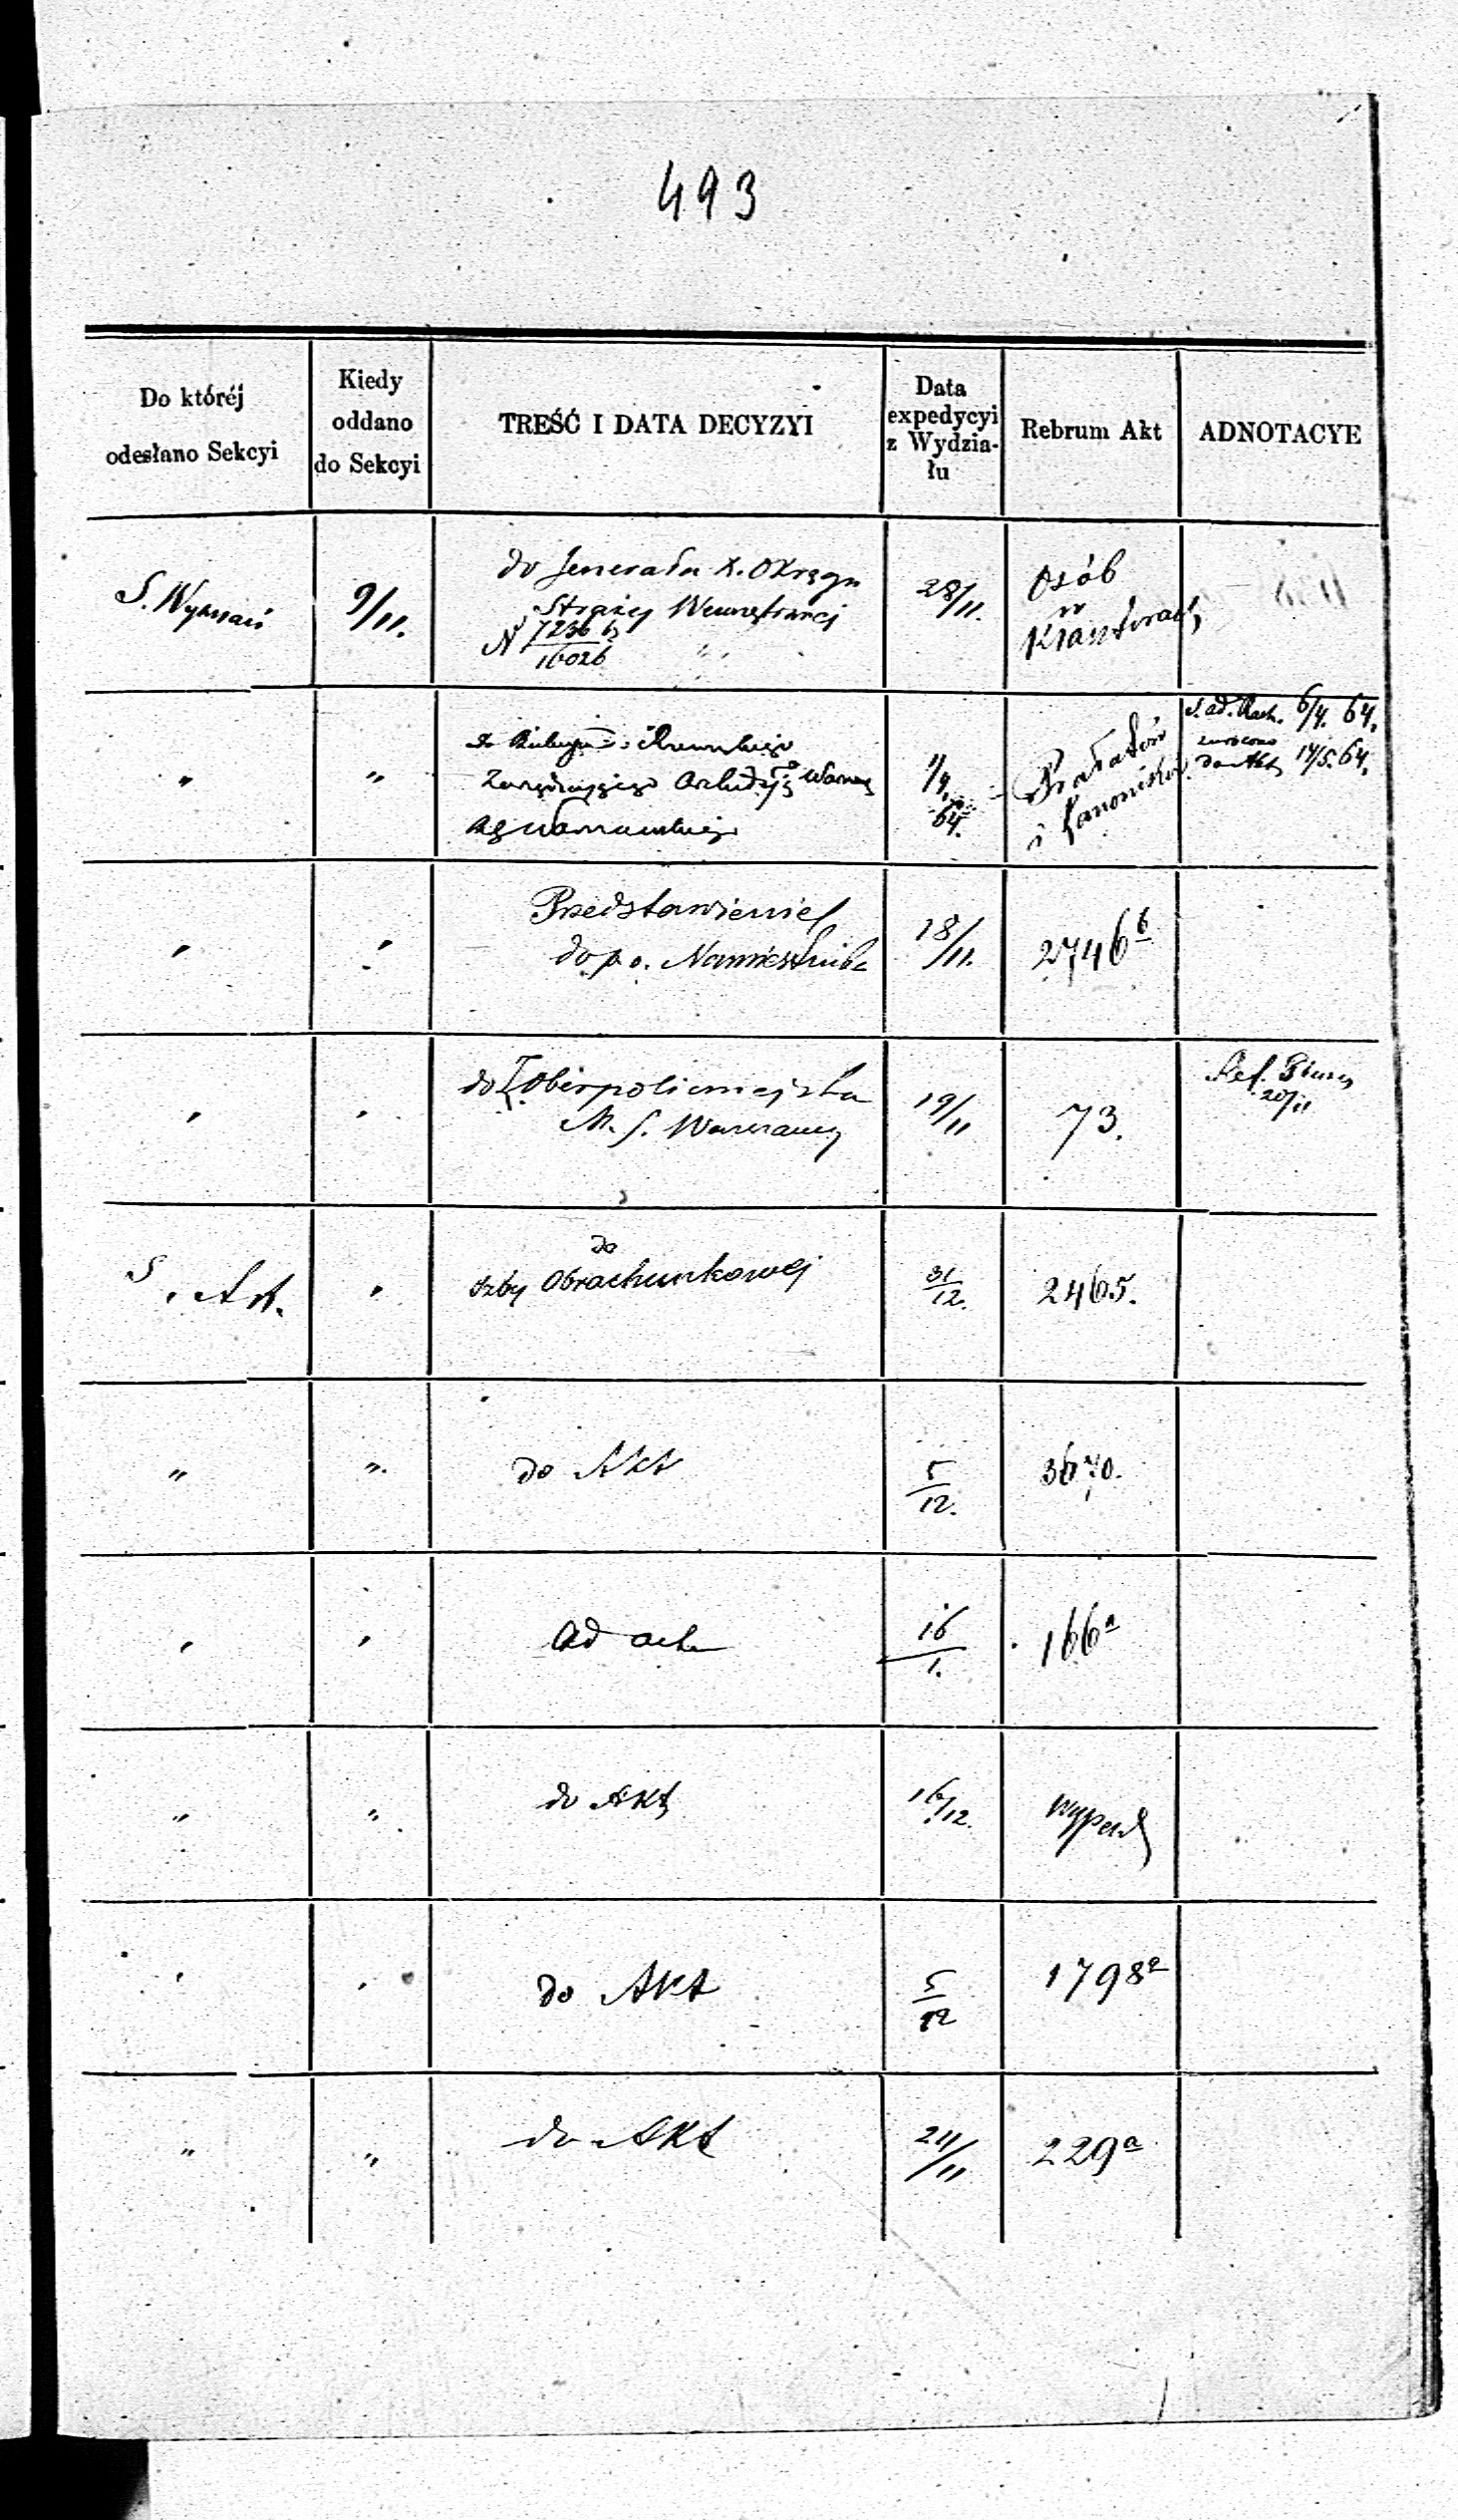 493
Do któréj
odesłano Sekcyi
Kiedy
oddano
do Sekcyi
TREŚĆ I DATA DECYZYI
Data
expedycyi
z Wydzia-
łu
Rebrum Akt
ADNOTACYE
S. Wyznań
9/11.
do Jenerała X. Okręgu
Straży Wewnętrznej
N 7236
16026
28/11.
Osób
w
Klasztorach
"
"
do
Zarządzającego
Warszawskiej
1/4
64.
Prałatów
i Kanoników
6/4. 64.
zwrócono
do Akt 14/5. 64.
"
"
Przedstawienie
do p. o. Namiestnika
18/11.
2746 b
"
"
do Oberpolicmajstra
M. S. Warszawy
19/11
73.
Ref.
20/11
S. Ad.
"
do
Izby Obrachunkowej
31/12.
2465.
"
"
do Akt
5/12.
3670.
"
"
ad acta
16/1.
166 a
"
"
do Akt
16/12.
"
"
do Akt
5/12
1798 a
"
"
do Akt
211/11
229 a